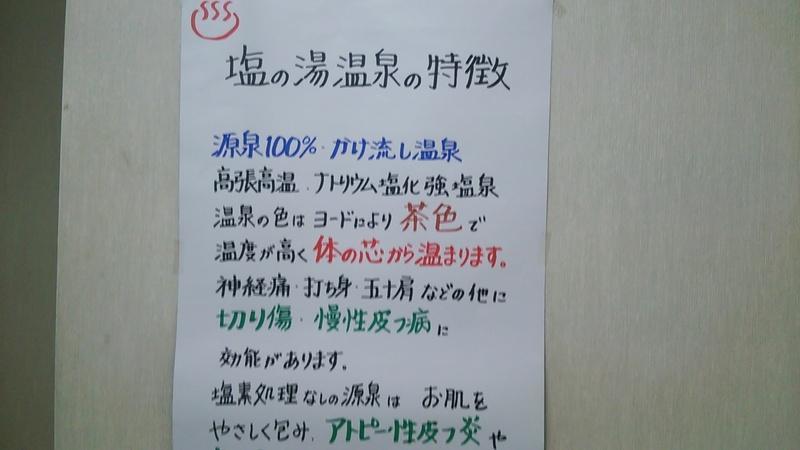 塩の湯温泉の特徴
源泉100%・かけ流し温泉
高張高温 ナトリウム塩化強塩泉
温泉の色はヨードにより茶色で
温度が高く体の芯から温まります。
神経痛・打ち身・五十肩などの他に
切り傷・慢性皮フ病に
効能があります。
塩素処理なしの源泉は お肌を
やさしく包み、アトピー性皮フ炎や